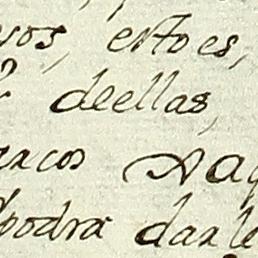 sos, esto es,
deellas,
racos Naq
podra darle